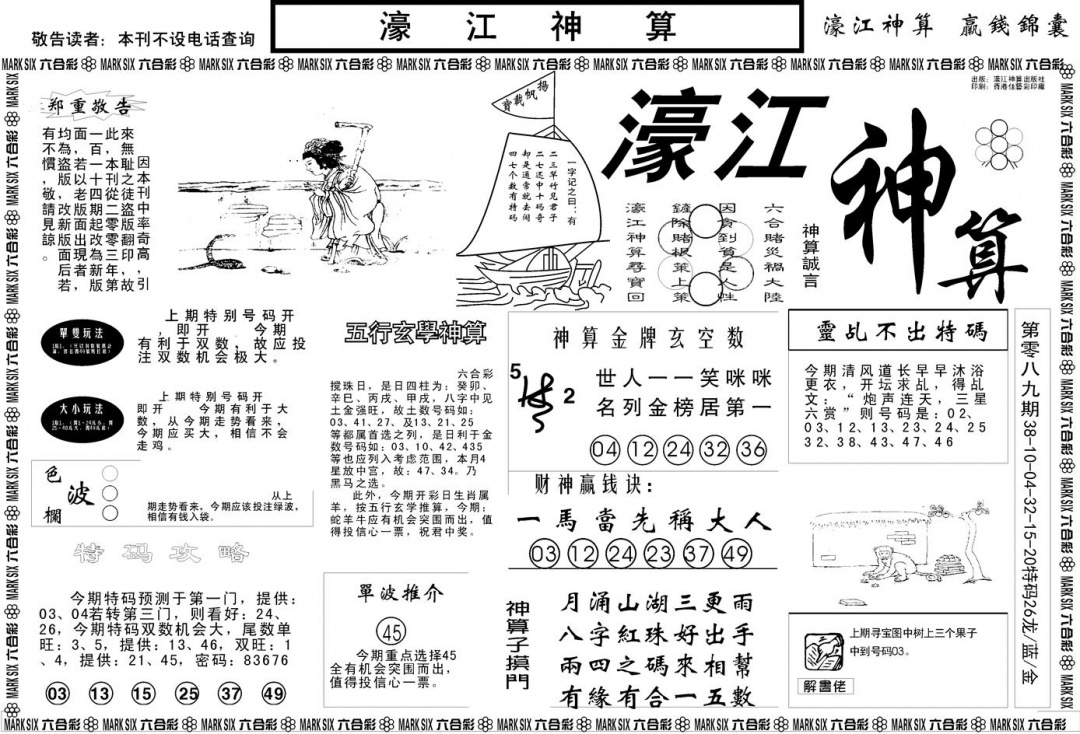 敬告读者：本刊不设电话查询
濠江神算
濠江神算 贏錢錦囊
MARK SIX 六合彩
出版：濠江神算出版社
印刷：香港佳藝彩印廠
郑重敬告
因本刊中率奇高，引
來無恥之徒盜翻印，故
此，本刊從二零零三年第
一百一十四期起改為新版，
面若以老版面出現者，
均為盜版，敬請見諒。
有不慣
揚帆載寶
一字记之曰：有
二三草竹见君子
二七还中十码奇
却是通常就去闹
四七个数有特码
濠江
神算
六合賭災禍大陸
因貪到貧是人性
鏟除賭根策上策
濠江神算尋寶回
神算誠言
單雙玩法
上期特别号码开
，即开 今期
有利于双数，故应投
注双数机会极大。
大小玩法
上期特别号码开
即开 今期有利于大
数，从今期走势看来，
今期应买大，相信不会
走鸡。
色波欄
从上
期走势看来，今期应该投注绿波，
相信有钱入袋。
特码攻略
今期特码预测于第一门，提供：
03、04若转第三门，则看好：24、
26，今期特码双数机会大，尾数单
旺：3、5，提供：13、46，双旺：1
、4，提供：21、45，密码：83676
03 13 15 25 37 49
五行玄學神算
六合彩
搅珠日，是日四柱为：癸卯、
辛巳、丙戌、甲戌，八字中见
土金强旺，故土数号码如：
03、41、27、及13、21、25
等都属首选之列，是日利于金
数号码如：03、10、42、435
等也应列入考虑范围，本月4
星放中宫，故：47、34。乃
黑马之选。
此外，今期开彩日生肖属
羊，按五行玄学推算，今期：
蛇羊牛应有机会突围而出，值
得投信心一票，祝君中奖。
單波推介
45
今期重点选择45
全有机会突围而出，
值得投信心一票。
神算金牌玄空数
5
2
世人一一笑咪咪
名列金榜居第一
04 12 24 32 36
财神赢钱诀：
一馬當先稱大人
03 12 24 23 37 49
神算子摸門
月涌山湖三更雨
八字紅珠好出手
兩四之碼來相幫
有緣有合一五數
靈乩不出特碼
今期清风道长早早沐浴
更衣，开坛求乩，得乩
文：“炮声连天，三星
六赏”则号码是：02、
03、12、13、23、24、25
32、38、43、47、46
上期寻宝图中树上三个果子
中到号码03。
解畫佬
第零八九期38-10-04-32-15-20特码26龙/蓝/金